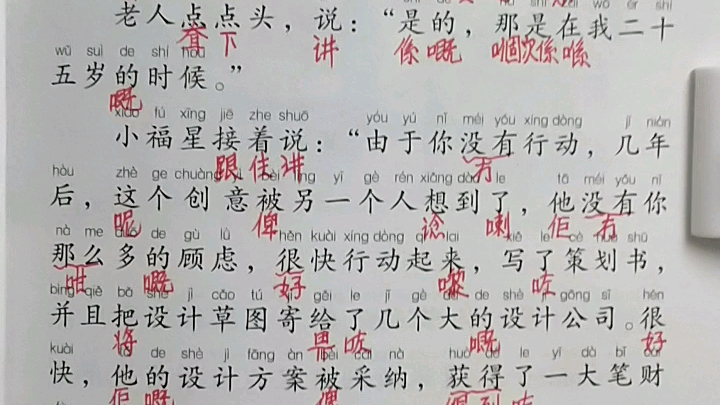 老人点点头，说：“是的，那是在我二十
耷下 讲 係嘅 嗰次係喺
wǔ suì de shí hou
五岁的时候。”
嘅
xiǎo fú xīng jiē zhe shuō yóu yú nǐ méi yǒu xíng dòng jǐ nián
小福星接着说：“由于你没有行动，几年
跟住讲 冇
hòu zhè ge chuàng yì bèi lìng yī gè rén xiǎng dào le tā méi yǒu nǐ
后，这个创意被另一个人想到了，他没有你
呢 俾 谂 喇 佢 冇
nà me duō de gù lǜ hěn kuài xíng dòng qǐ lai xiě le cè huà shū
那么多的顾虑，很快行动起来，写了策划书，
咁 嘅 好 嚟 咗
bìng qiě bǎ shè jì cǎo tú jì gěi le jǐ gè dà de shè jì gōng sī hěn
并且把设计草图寄给了几个大的设计公司。很
将 畀 咗 嘅 好
kuài tā de shè jì fāng àn bèi cǎi nà huò dé le yī dà bǐ cái
快，他的设计方案被采纳，获得了一大笔财
佢 嘅 俾 得到咗